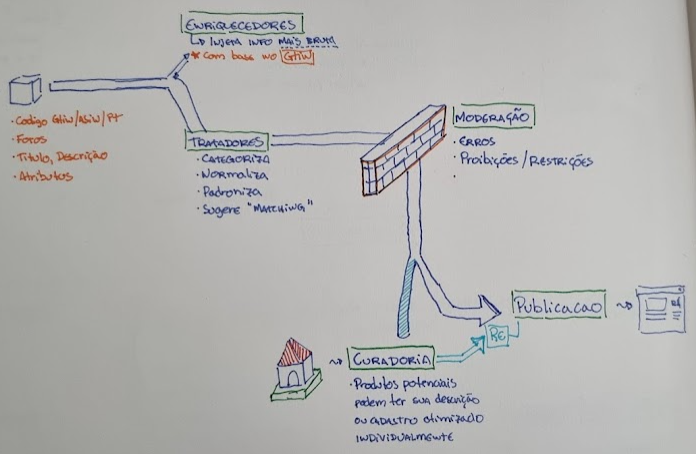 ENRIQUECEDORES
↳ INJEM INFO MAIS BRUTA
* Com base no GTIN
• Codigo GTIN/ASIN/PT
• Fotos
• Titulo, Descrição
• Atributos
TRATADORES
• CATEGORIZA
• Normaliza
• Padroniza
• Sugere "MATCHING"
MODERAÇÃO
• ERROS
• Proibições/RESTRIÇÕES
•
Publicacao
RE
CURADORIA
• Produtos potenciais
podem ter sua descrição
ou cadastro otimizado
INDIVIDUALMENTE